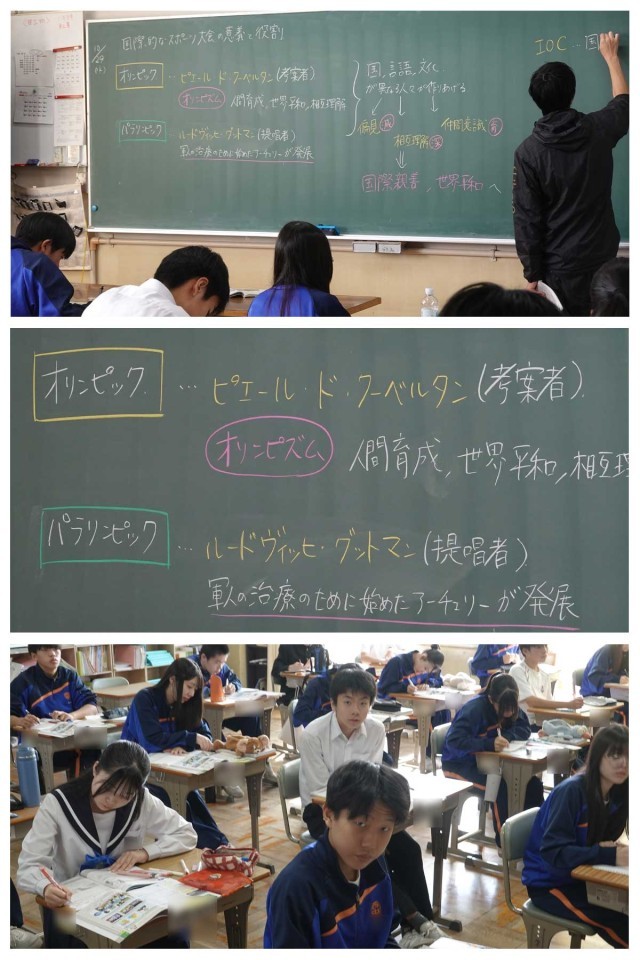 国際的なスポーツ大会の意義と役割
10/29
オリンピック … ピエール・ド・クーベルタン(考案者)
オリンピズム 人間育成、世界平和、相互理解
パラリンピック … ルードヴィッヒ・グットマン(提唱者)
軍人の治療のために始めたアーチェリーが発展
国、言語、文化
が異なる人々が作りあげる
偏見 減
相互理解 深
仲間意識 育
国際親善、世界平和へ
IOC … 国
オリンピック … ピエール・ド・クーベルタン(考案者)
オリンピズム 人間育成、世界平和、相互理
パラリンピック … ルードヴィッヒ・グットマン(提唱者)
軍人の治療のために始めたアーチェリーが発展